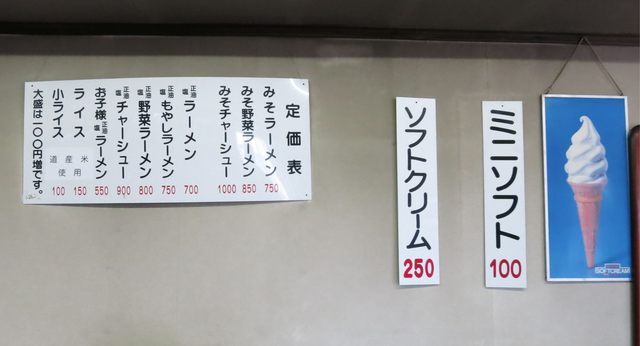 定価表
みそラーメン 750
みそ野菜ラーメン 850
みそチャーシュー 1000
正油 塩 ラーメン 700
正油 塩 もやしラーメン 750
正油 塩 野菜ラーメン 800
正油 塩 チャーシュー 900
お子様 正油 塩 ラーメン 550
ライス 150
小ライス 100
道産米
使用
大盛は一〇〇円増です。
ソフトクリーム 250
ミニソフト 100
SOFTCREAM